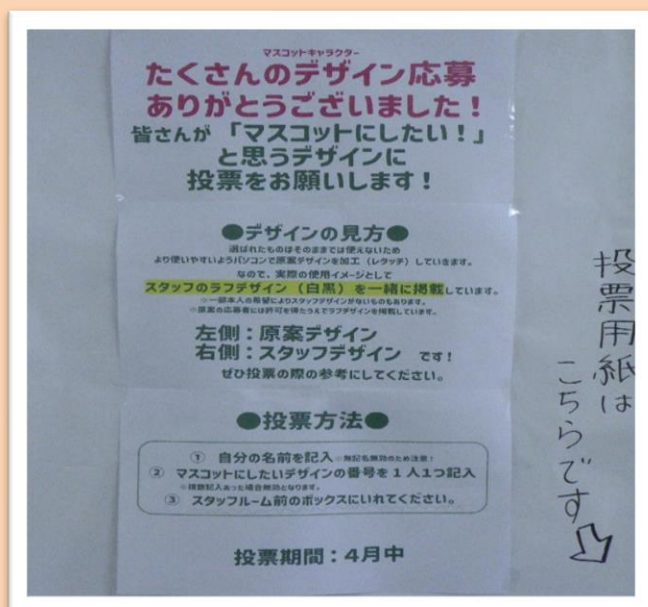 マスコットキャラクター
たくさんのデザイン応募
ありがとうございました！
皆さんが「マスコットにしたい！」
と思うデザインに
投票をお願いします！
●デザインの見方●
選ばれたものはそのままでは使えないため
より使いやすいようパソコンで原案デザインを加工（レタッチ）していきます。
なので、実際の使用イメージとして
スタッフのラフデザイン（白黒）を一緒に掲載しています。
※一部本人の希望によりスタッフデザインがないものもあります。
※原案の応募者には許可を得たうえでラフデザインを掲載しています。
左側：原案デザイン
右側：スタッフデザイン です！
ぜひ投票の際の参考にしてください。
●投票方法●
① 自分の名前を記入 ※無記名無効のため注意！
② マスコットにしたいデザインの番号を１人１つ記入
※複数記入あった場合無効となります。
③ スタッフルーム前のボックスにいれてください。
投票期間：４月中
投票用紙は
こちらです